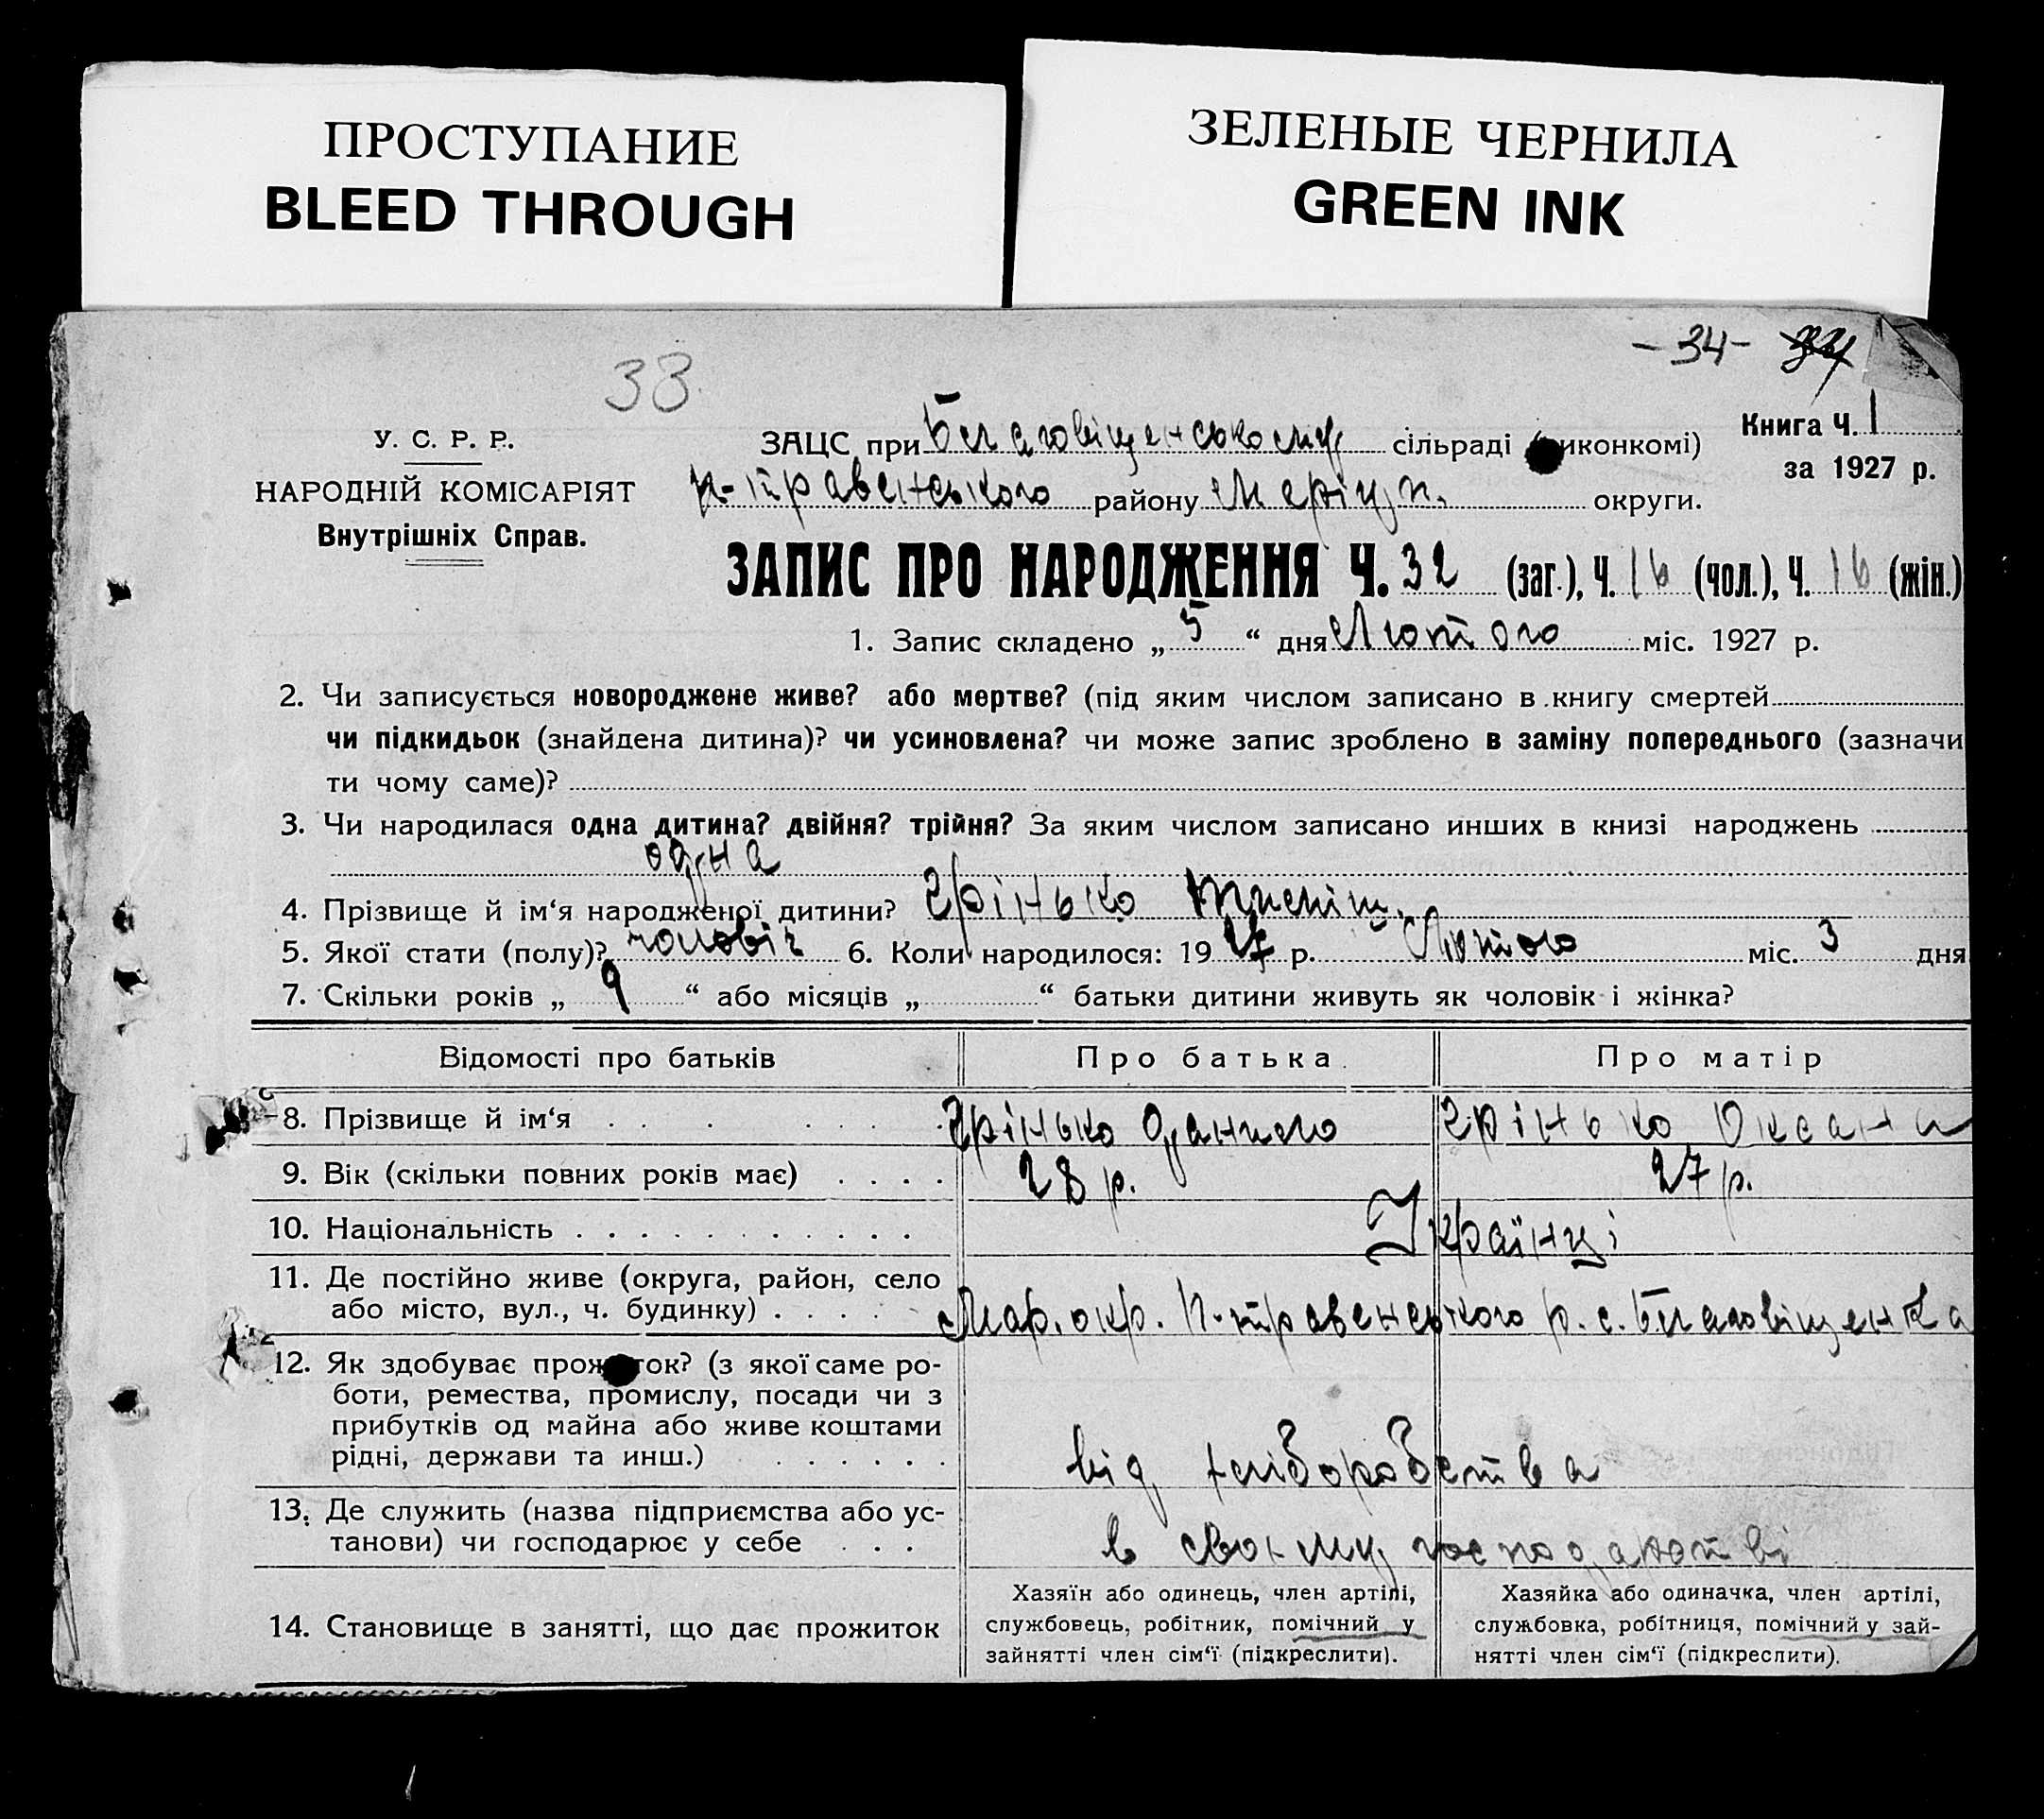 ПРОСТУПАНИЕ
BLEED THROUGH
ЗЕЛЕНЫЕ ЧЕРНИЛА
GREEN INK
-34-
33
У. С. Р. Р.
НАРОДНІЙ КОМІСАРІЯТ
Внутрішніх Справ.
ЗАЦС при Благовіщенському сільраді (виконкомі)
Книга Ч. 1
за 1927 р.
п-травенського району Маріуп. округи.
ЗАПИС ПРО НАРОДЖЕННЯ Ч. 32 (заг.), Ч. 16 (чол.), Ч. 16 (жін.)
1. Запис складено „ 5 “ дня Лютого міс. 1927 р.
2. Чи записується новороджене живе? або мертве? (під яким числом записано в книгу смертей
чи підкидьок (знайдена дитина)? чи усиновлена? чи може запис зроблено в заміну попереднього (зазначи
ти чому саме)?
3. Чи народилася одна дитина? двійня? трійня? За яким числом записано инших в книзі народжень
одна
4. Прізвище й ім‘я народженої дитини? Грінько
5. Якої стати (полу)? чоловіч 6. Коли народилося: 1927 р. Лютого міс. 3 дня
7. Скільки років „ 9 “ або місяців „ “ батьки дитини живуть як чоловік і жінка?
Відомості про батьків Про батька Про матір
8. Прізвище й ім‘я Грінько Данило Грінько Оксана
9. Вік (скільки повних років має) 28 р. 27 р.
10. Національність Українці
11. Де постійно живе (округа, район, село
або місто, вул., ч. будинку) Мар. окр. П-травенського р. с. Благовіщенка
12. Як здобуває прожиток? (з якої саме ро-
боти, ремества, промислу, посади чи з
прибутків од майна або живе коштами
рідні, держави та инш.)
від хліборобства
13. Де служить (назва підприємства або ус-
танови) чи господарює у себе
в своєму господарстві
14. Становище в занятті, що дає прожиток
Хазяїн або одинець, член артілі,
службовець, робітник, помічний у
зайнятті член сім‘ї (підкреслити).
Хазяйка або одиначка, член артілі,
службовка, робітниця, помічний у зай-
нятті член сім‘ї (підкреслити).